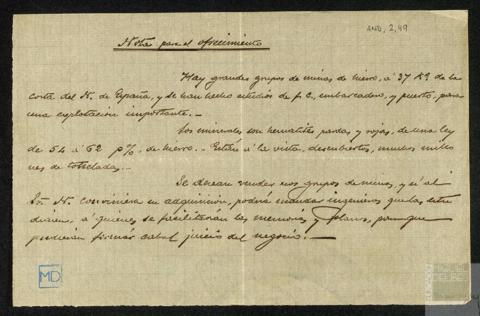 AND, 2, 49
Notas para el ofrecimiento
Hay grandes grupos de minas de hierro, á 37 Kº de la
costa del N. de España, y se han hecho estudios de f. c., embarcadero, y puerto, para
una explotación importante.—
Los minerales son hematites pardas y rojas, de una ley
de 54 á 62 p%. de hierro.— Están á la vista, descubiertos, muchos millo
nes de toneladas.—
Se desean vender esos grupos de minas, y si al
Sr. N. conviniera su adquisición, podría mandar ingenieros que las estu
diaran, á quienes se facilitarán las memorias y planos, para que
pudieran formar cabal juicio del negocio.—
MD